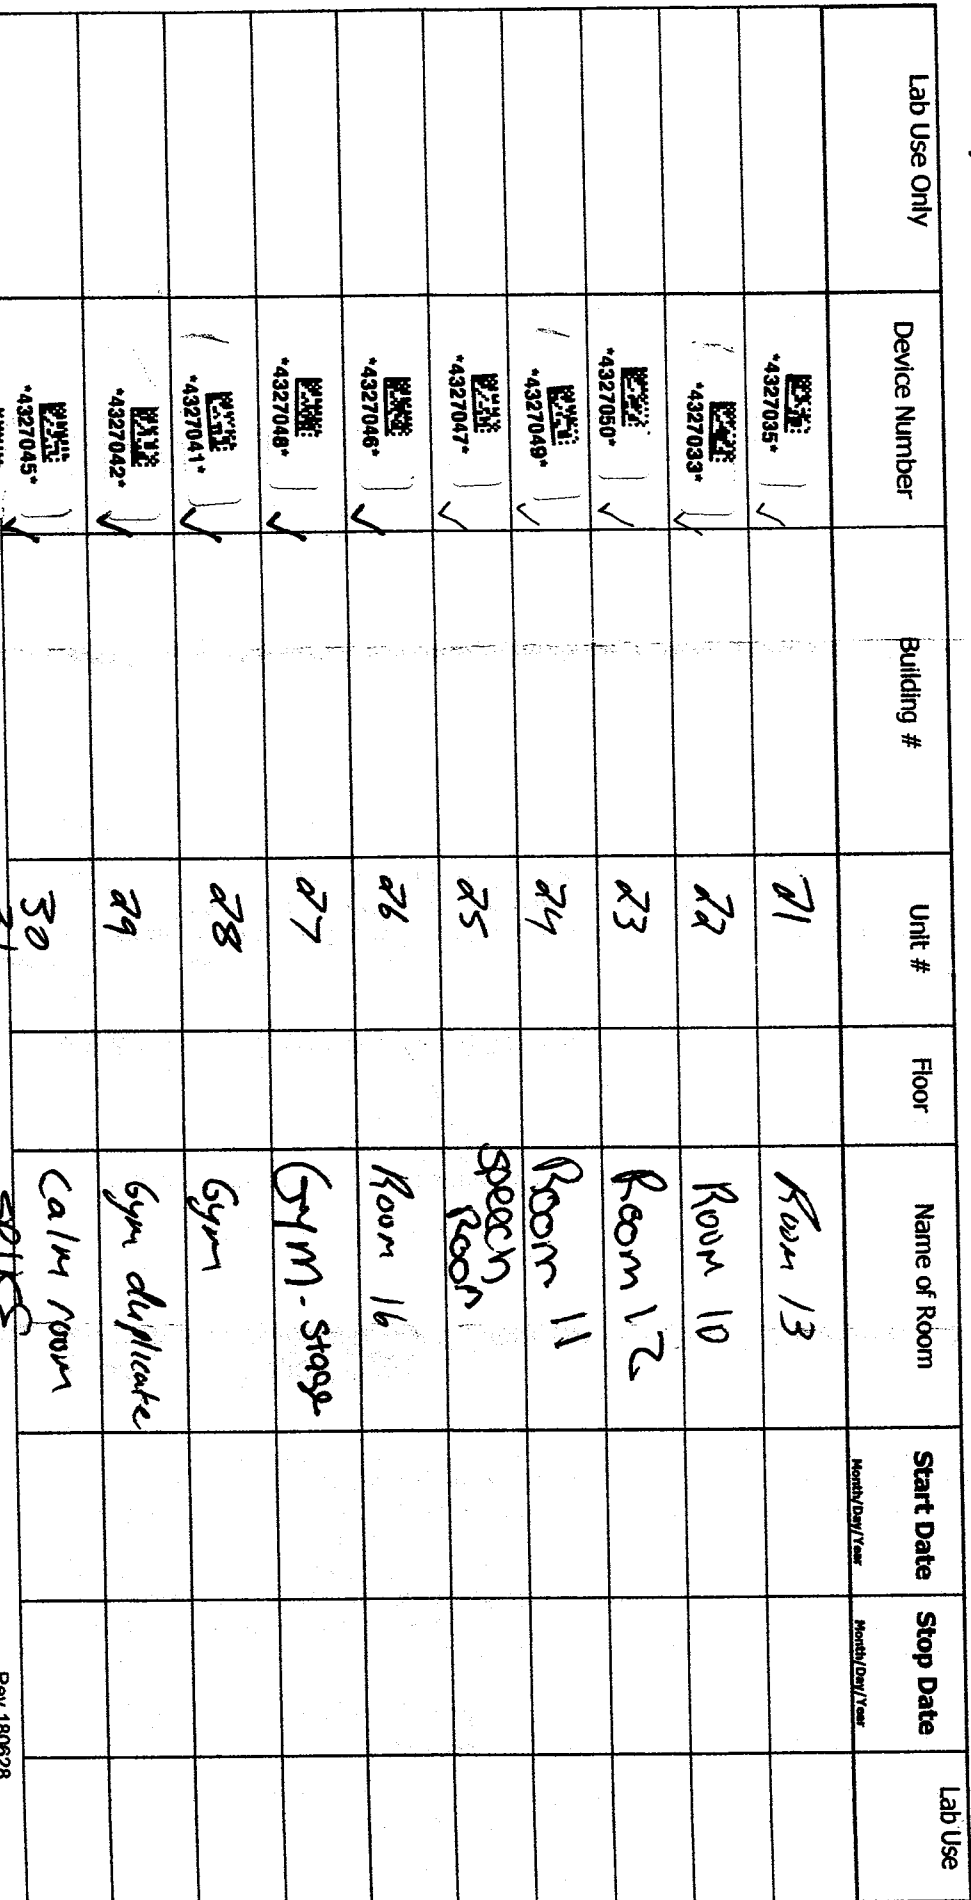 Lab Use Only Device Number Building # Unit # Floor Name of Room Start Date Stop Date Lab Use
Month/Day/Year Month/Day/Year
*4327035* 21 Room 13
*4327033* 22 Room 10
*4327050* 23 Room 12
*4327049* 24 Room 11
*4327047* 25 Speech Room
*4327046* 26 Room 16
*4327048* 27 Gym - Stage
*4327041* 28 Gym
*4327042* 29 Gym duplicate
*4327045* 30 Calm room
Rev 180628